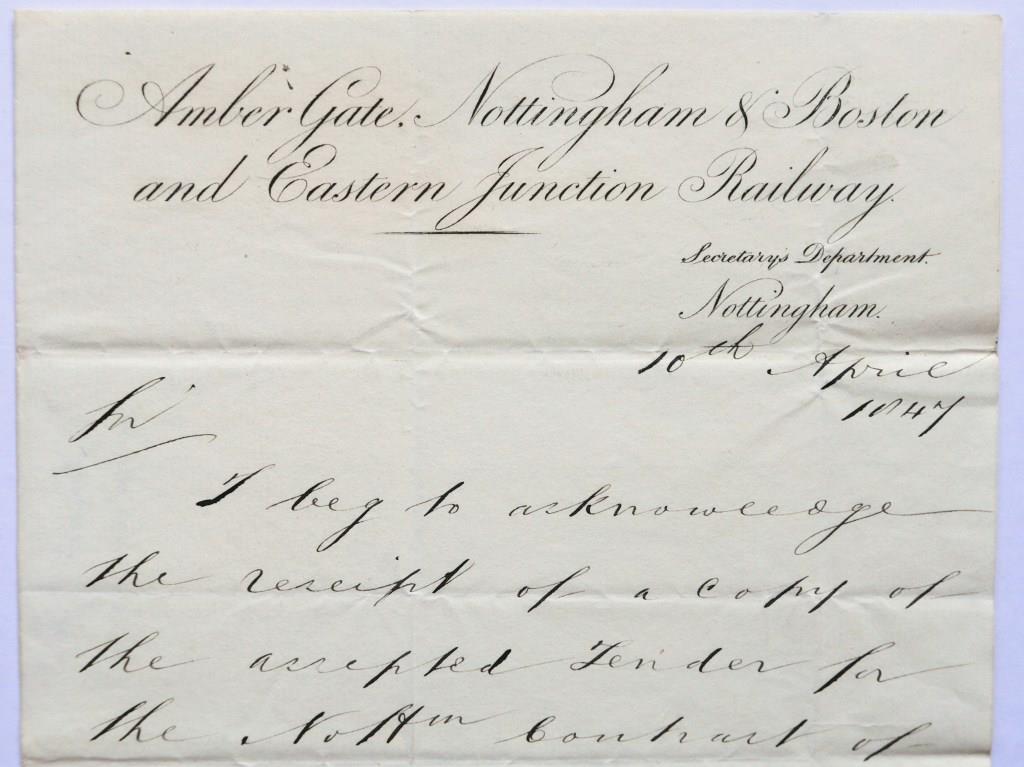 Amber Gate, Nottingham & Boston
and Eastern Junction Railway.
Secretary's Department.
Nottingham.
10th April
1847
Sir
I beg to acknowledge
the receipt of a copy of
the accepted Tender for
the Nottm Contract of